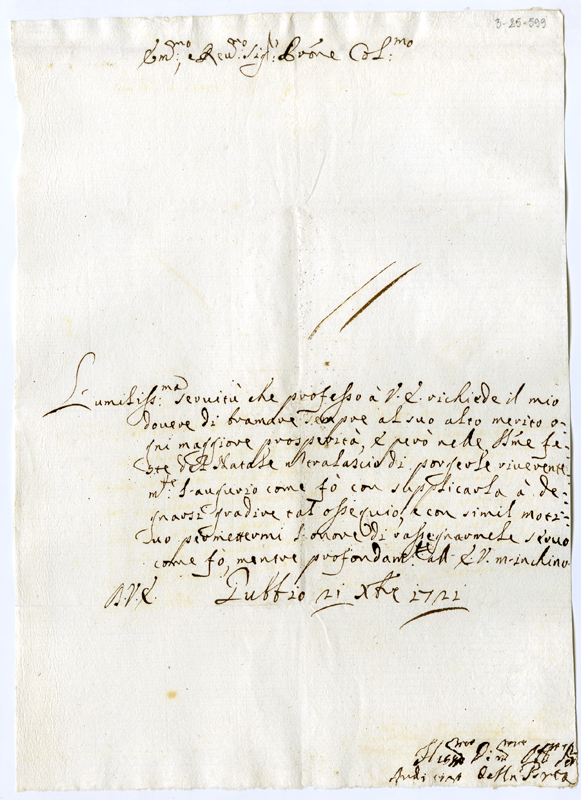 3-25-599
Em:mo, e Reu:mo Sig:r Prone Col:mo
L'umiliss:ma seruitù che professo à V. E. richiede il mio
douere di bramare sempre al suo alto merito o-
gni maggiore prosperità, e però nelle SSme fe-
ste del Natale ntralascio di porgerle riuerente-
m:te l'augurio come fò con supplicarla à de-
gnarsi gradire tal ossequio, e con simil moti-
uo permettermi l'onore di rassegnarmele seruo
come fò, mentre profondam:te all' E. V. m'inchino
D. V. E. Gubbio 21 Xbre 1721
della Porta